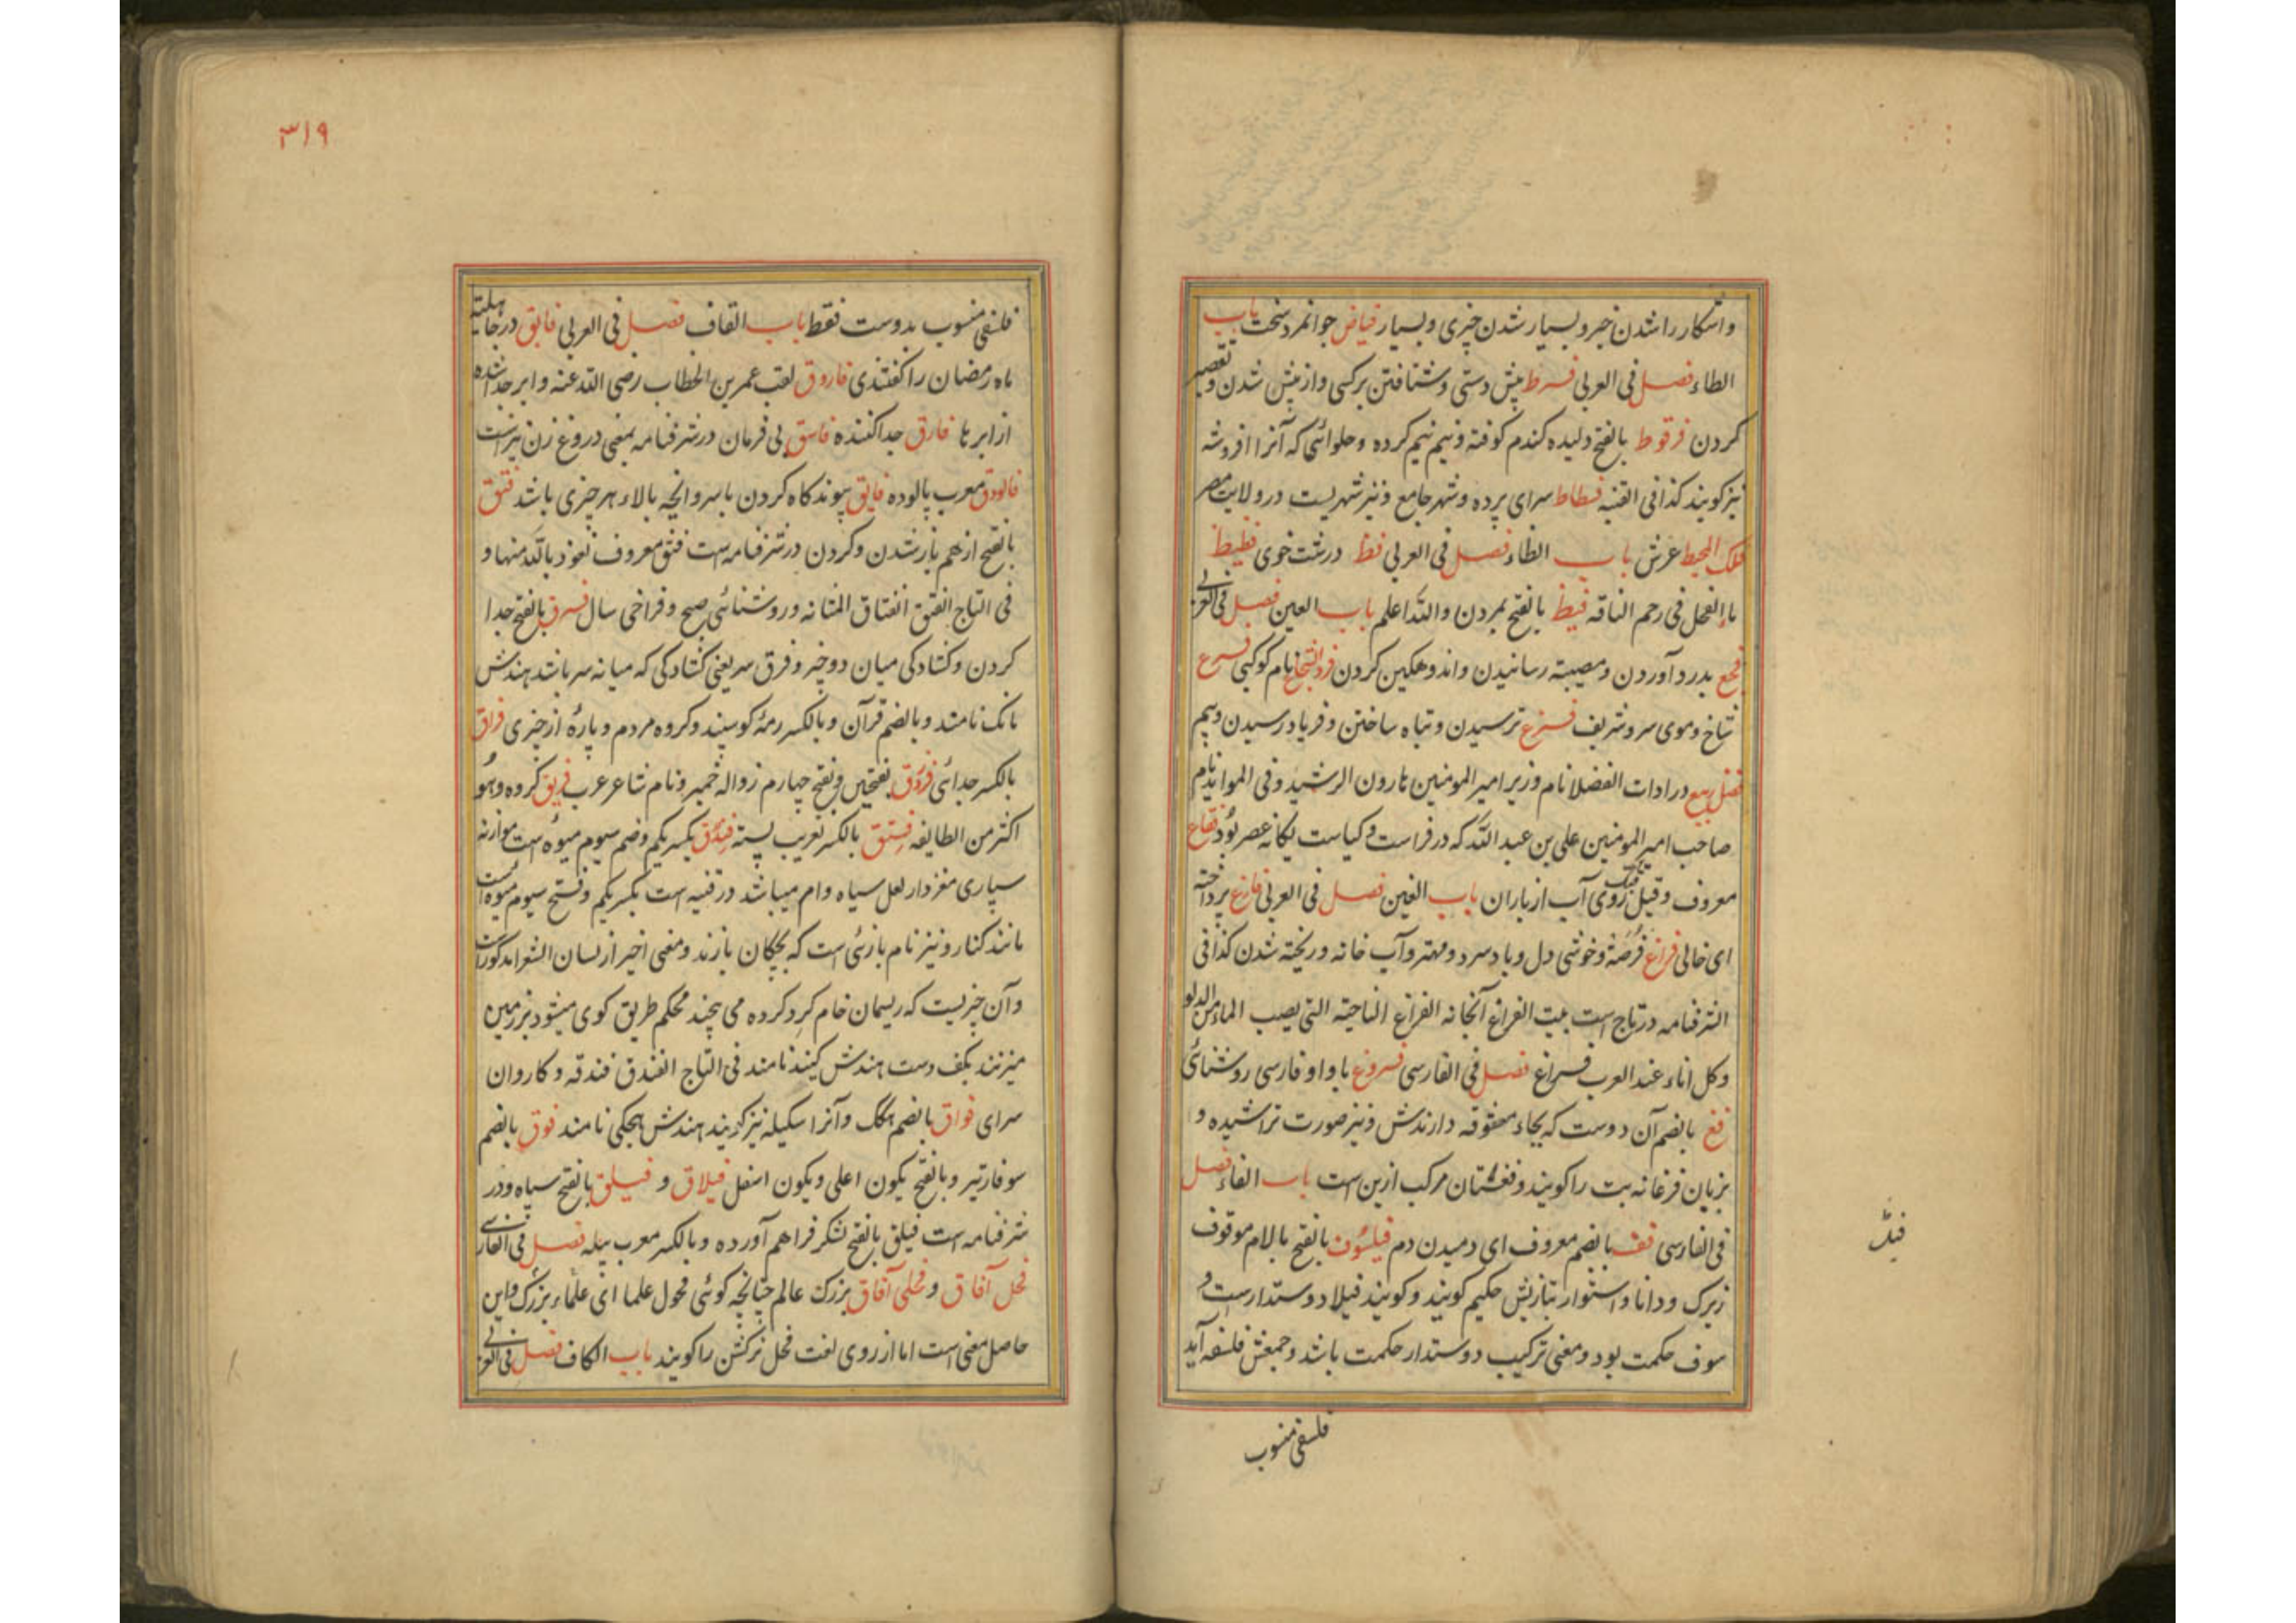 واشکارا شدن خبر و بسیار شدن چیزی و بسیار فیاض جوانمرد سخت باب
الطاء فصل فی العربی فرط پیش دستی و شتافتن بر کسی و از پیش شدن و تقصیر
کردن فرقوط بالفتح دلیده کندم کوفته و نیم نیم کرده و حلوائی که آنرا افروشه
نیز کویند کذا فی القنیه فسطاط سرای پرده و شهر جامع و نیز شهریست در ولایت مصر
فلک المحیط عرش باب الظاء فصل فی العربی فظ درشت خوی فظیظ
ماء الفحل فی رحم الناقه فیظ بالفتح بمردن والله اعلم باب العین فصل فی العربی
فجع بدرد آوردن و مصیبته رسانیدن و اندوهکین کردن فرد الشجاع نام کوکبی فرع
شاخ و موی سر و شریف فزع ترسیدن و تباه ساختن و فریاد رسیدن و بیم
فضل ربیع در ادات الفضلا نام وزیر امیر المومنین هارون الرشید و فی الموائد نام
صاحب امیر المومنین علی بن عبد الله که در فراست و کیاست یکانه عصر بود فقاع
معروف و قیل روی آب از باران باب الغین فصل فی العربی فارغ پرداخته
ای خالی فراغ فرصة و خوشی دل و باد سرد و مهتر و آب خانه و ریخته شدن کذا فی
الشرفنامه در تاج است بیت الفراغ آبخانه الفراغ الناحیة التی یصب الماء من الدلو
وکل اناء عند العرب فراغ فصل فی الفارسی فروغ باواو فارسی روشنائی
فغ بالضم آن دوست که بجاء معشوقه دارندش و نیز صورت تراشیده و
بزبان فرغانه بت را کویند و فغستان مرکب ازین است باب الفاء فصل
فی الفارسی فف بالضم معروف ای دمیدن دم فیلسوف بالفتح بالام موقوف
زیرک و دانا و استوار بتازیش حکیم کویند و کویند فیلا دوستدار است و
سوف حکمت بود و معنی ترکیب دوستدار حکمت باشد و جمعش فلسفه آید
فلسفی منسوب
۳۱۹
فلسفی منسوب بدوست فقط باب القاف فصل فی العربی فایق در جاهلیته
ماه رمضان را کفتندی فاروق لقب عمر بن الخطاب رضی الله عنه و ابر جدا شده
از ابرها فارق جدا کننده فاسق بی فرمان در شرفنامه بمعنی دروغ زن نیز است
فالودق معرب پالوده فایق پیوند کاه کردن باسر و انچه بالاء هر چیزی باشد فتق
بالفتح از هم باز شدن و کردن در شرفنامه است فتق معروف نعوذ بالله منها و
فی التاج الفتق انفتاق المثانه و روشنائی صبح و فراخی سال فرق بالفتح جدا
کردن و کشادکی میان دو چیز و فرق سر یعنی کشادکی که میانه سر باشد هندش
مانک نامند و بالضم قرآن و بالکسر رمه کوسپند و کروه مردم و پارهٔ از چیزی فراق
بالکسر جدائی فرزدق بفتحتین و بفتح چهارم زواله خمیر و نام شاعر عرب فریق کروه و هو
اکثر من الطایفه فستق بالکسر تعریب پسته فندق بکسر یکم و ضم سیوم میوه است موازنه
سپاری مغزدار لعل سیاه وام میباشد در قنیه است بکسر یکم و فتح سیوم میوه است
مانند کنار و نیز نام بازئی است که بچکان بازند و معنی اخیر از لسان الشعرا مذکور است
و آن چیزیست که ریسمان خام کرد کرده می پیچند محکم طریق کوی میشود بزمین
میزنند بکف دست هندش کیند نامند فی التاج الفندق فندقه و کاروان
سرای فواق بالضم هکک و آنرا سکیله نیز کویند هندش هچکی نامند فوق بالضم
سوفار تیر و بالفتح یکون اعلی و یکون اسفل فیلاق و فیلق بالفتح سپاه و در
شرفنامه است فیلق بالفتح لشکر فراهم آورده و بالکسر معرب پیله فصل فی الفارسی
فحل آفاق و فحلی آفاق بزرک عالم چنانچه کوئی فحول علما ای علماء بزرک و این
حاصل معنی است اما از روی لغت فحل نرکشن را کویند باب الکاف فصل فی العربی